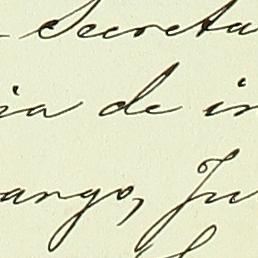 Secreta
ia de in
ango, Ju